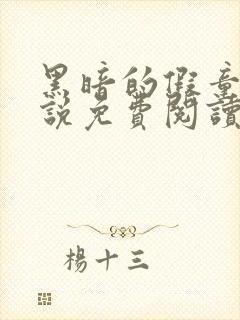 黑暗的假童
說免費閱讀
楊十三